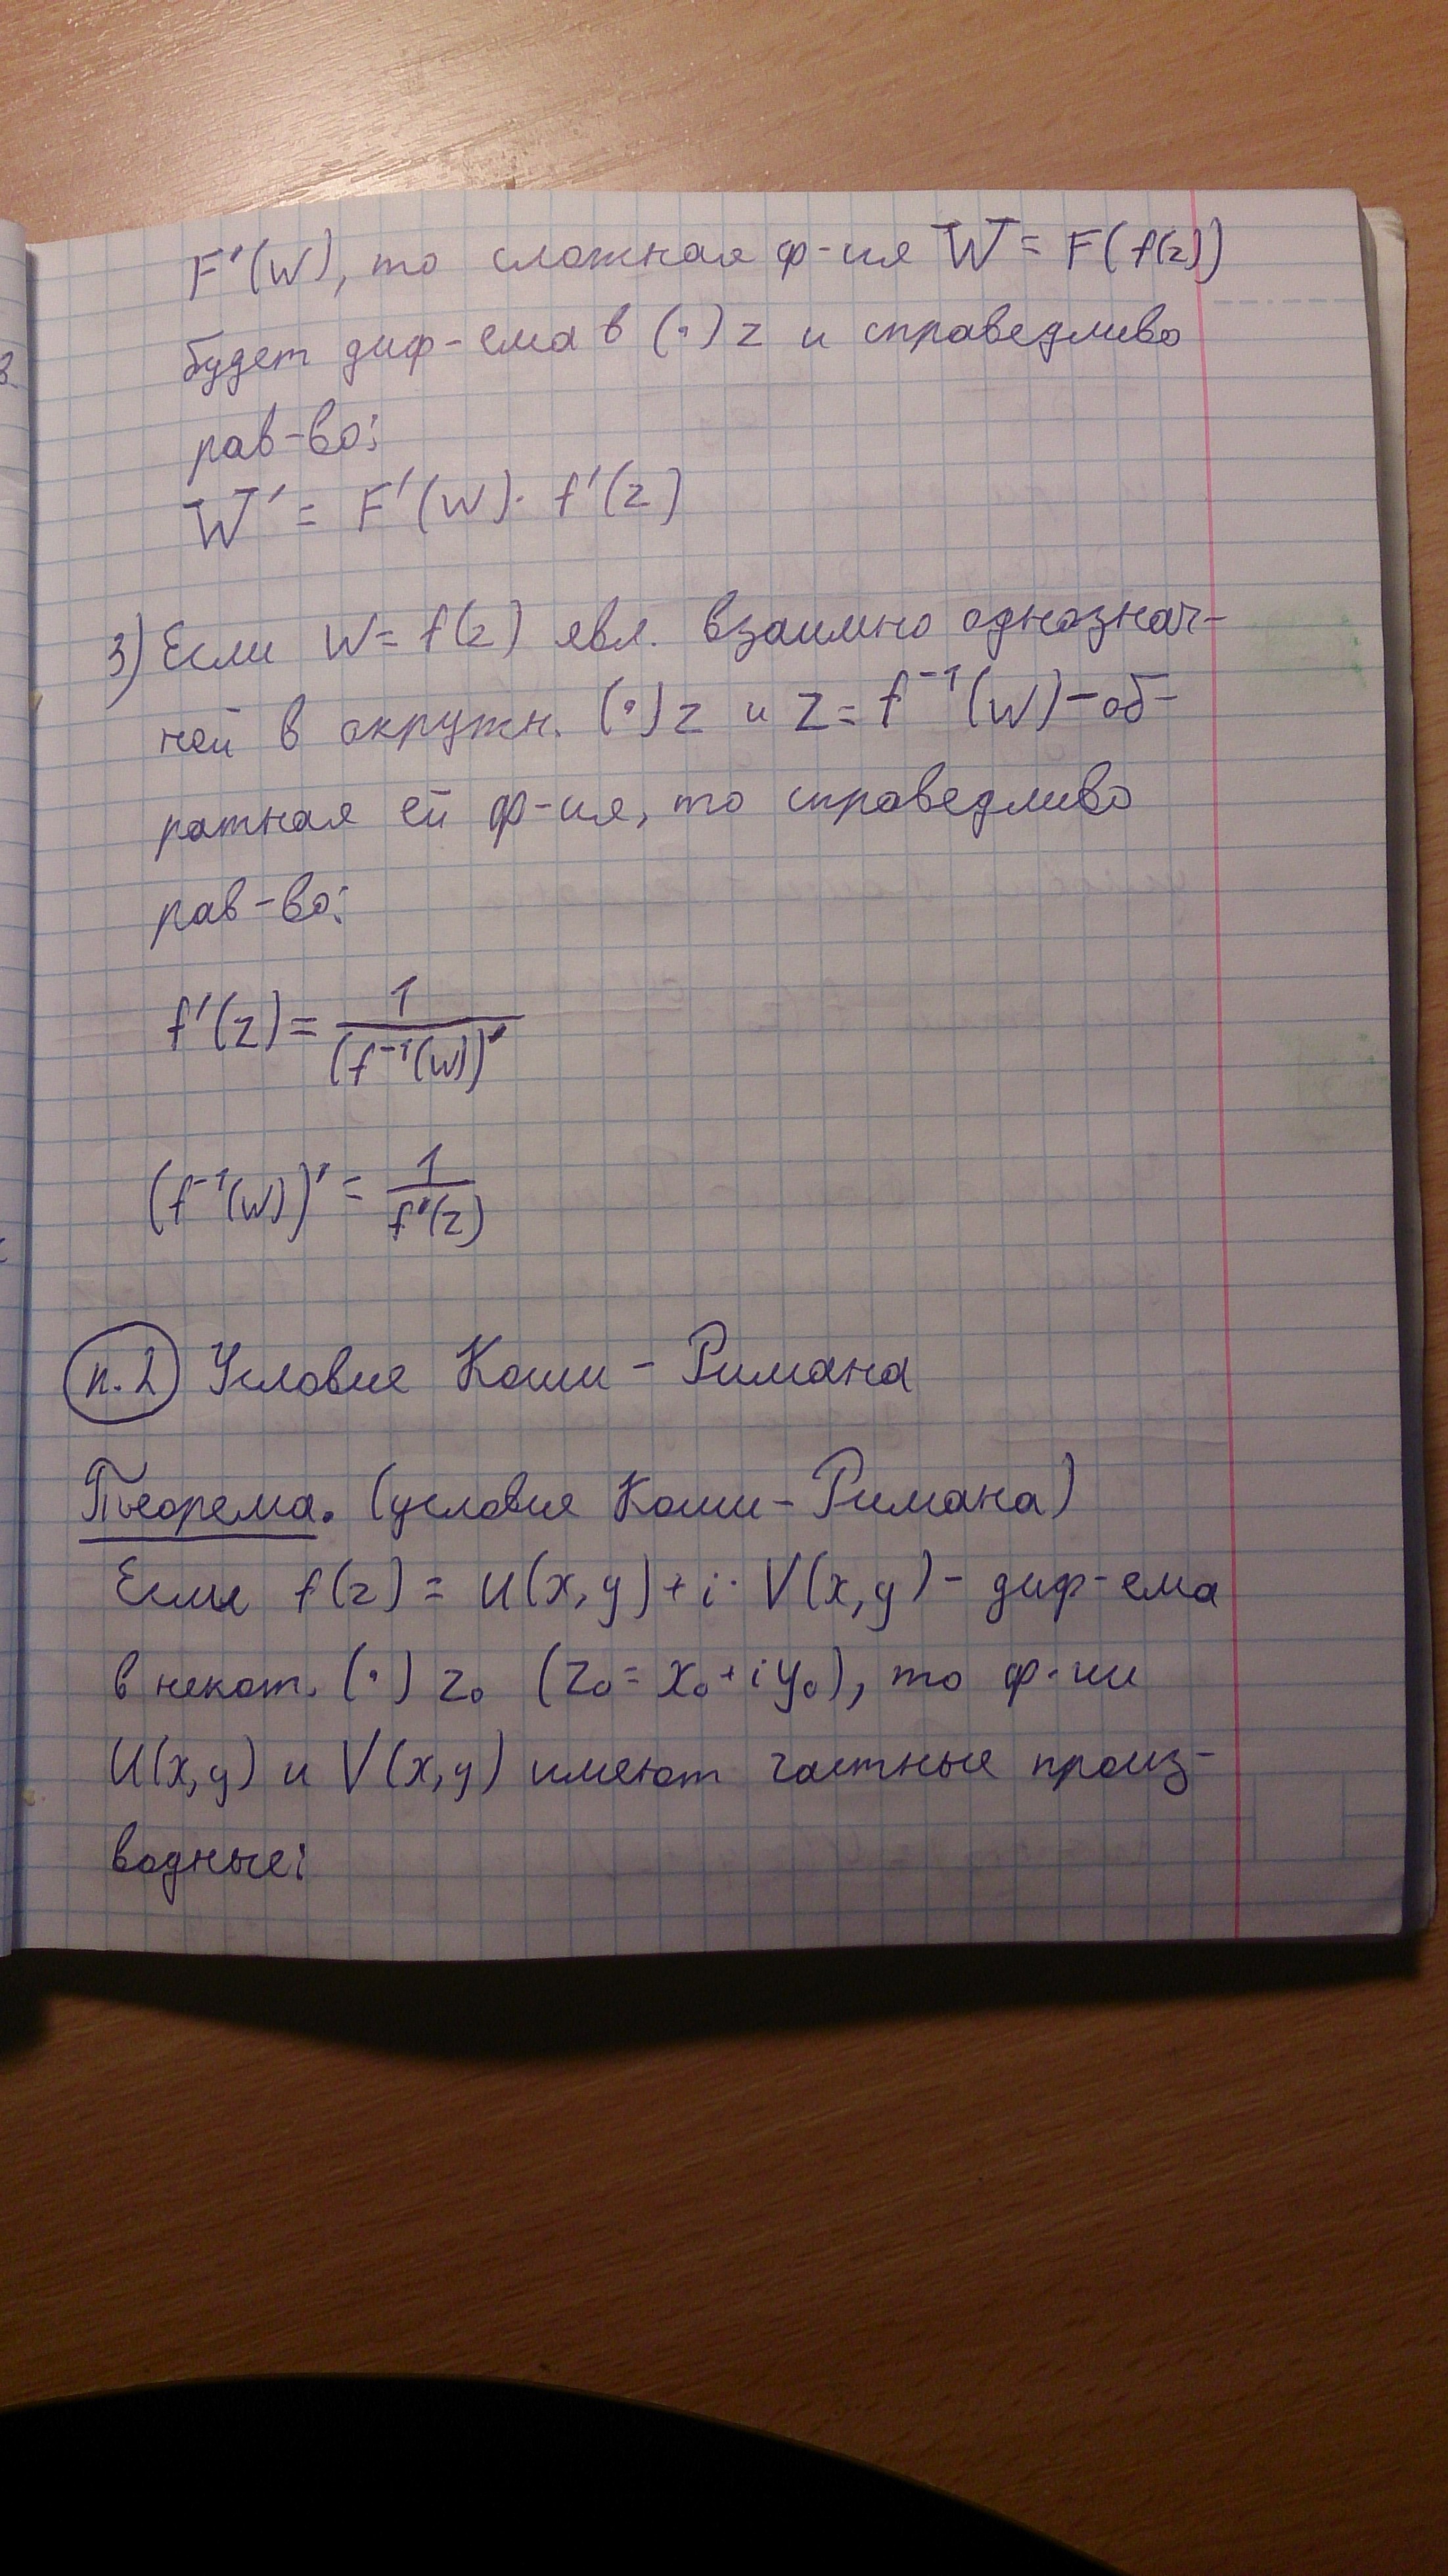 F'(W), то сложная ф-ия W = F(f(z))
будет диф-ема в (·) z и справедливо
рав-во:
W' = F'(W) · f'(z)
3) Если W = f(z) явл. взаимно однознач-
ной в окружн. (·) z и z = f⁻¹(W) - об-
ратная ей ф-ия, то справедливо
рав-во:
f'(z) = 1 / (f⁻¹(W))'
(f⁻¹(W))' = 1 / f'(z)
п.2 Условие Коши - Римана
Теорема. (условие Коши - Римана)
Если f(z) = U(x,y) + i · V(x,y) - диф-ема
в некот. (·) z₀ (z₀ = x₀ + iy₀), то ф-ии
U(x,y) и V(x,y) имеют частные произ-
водные: